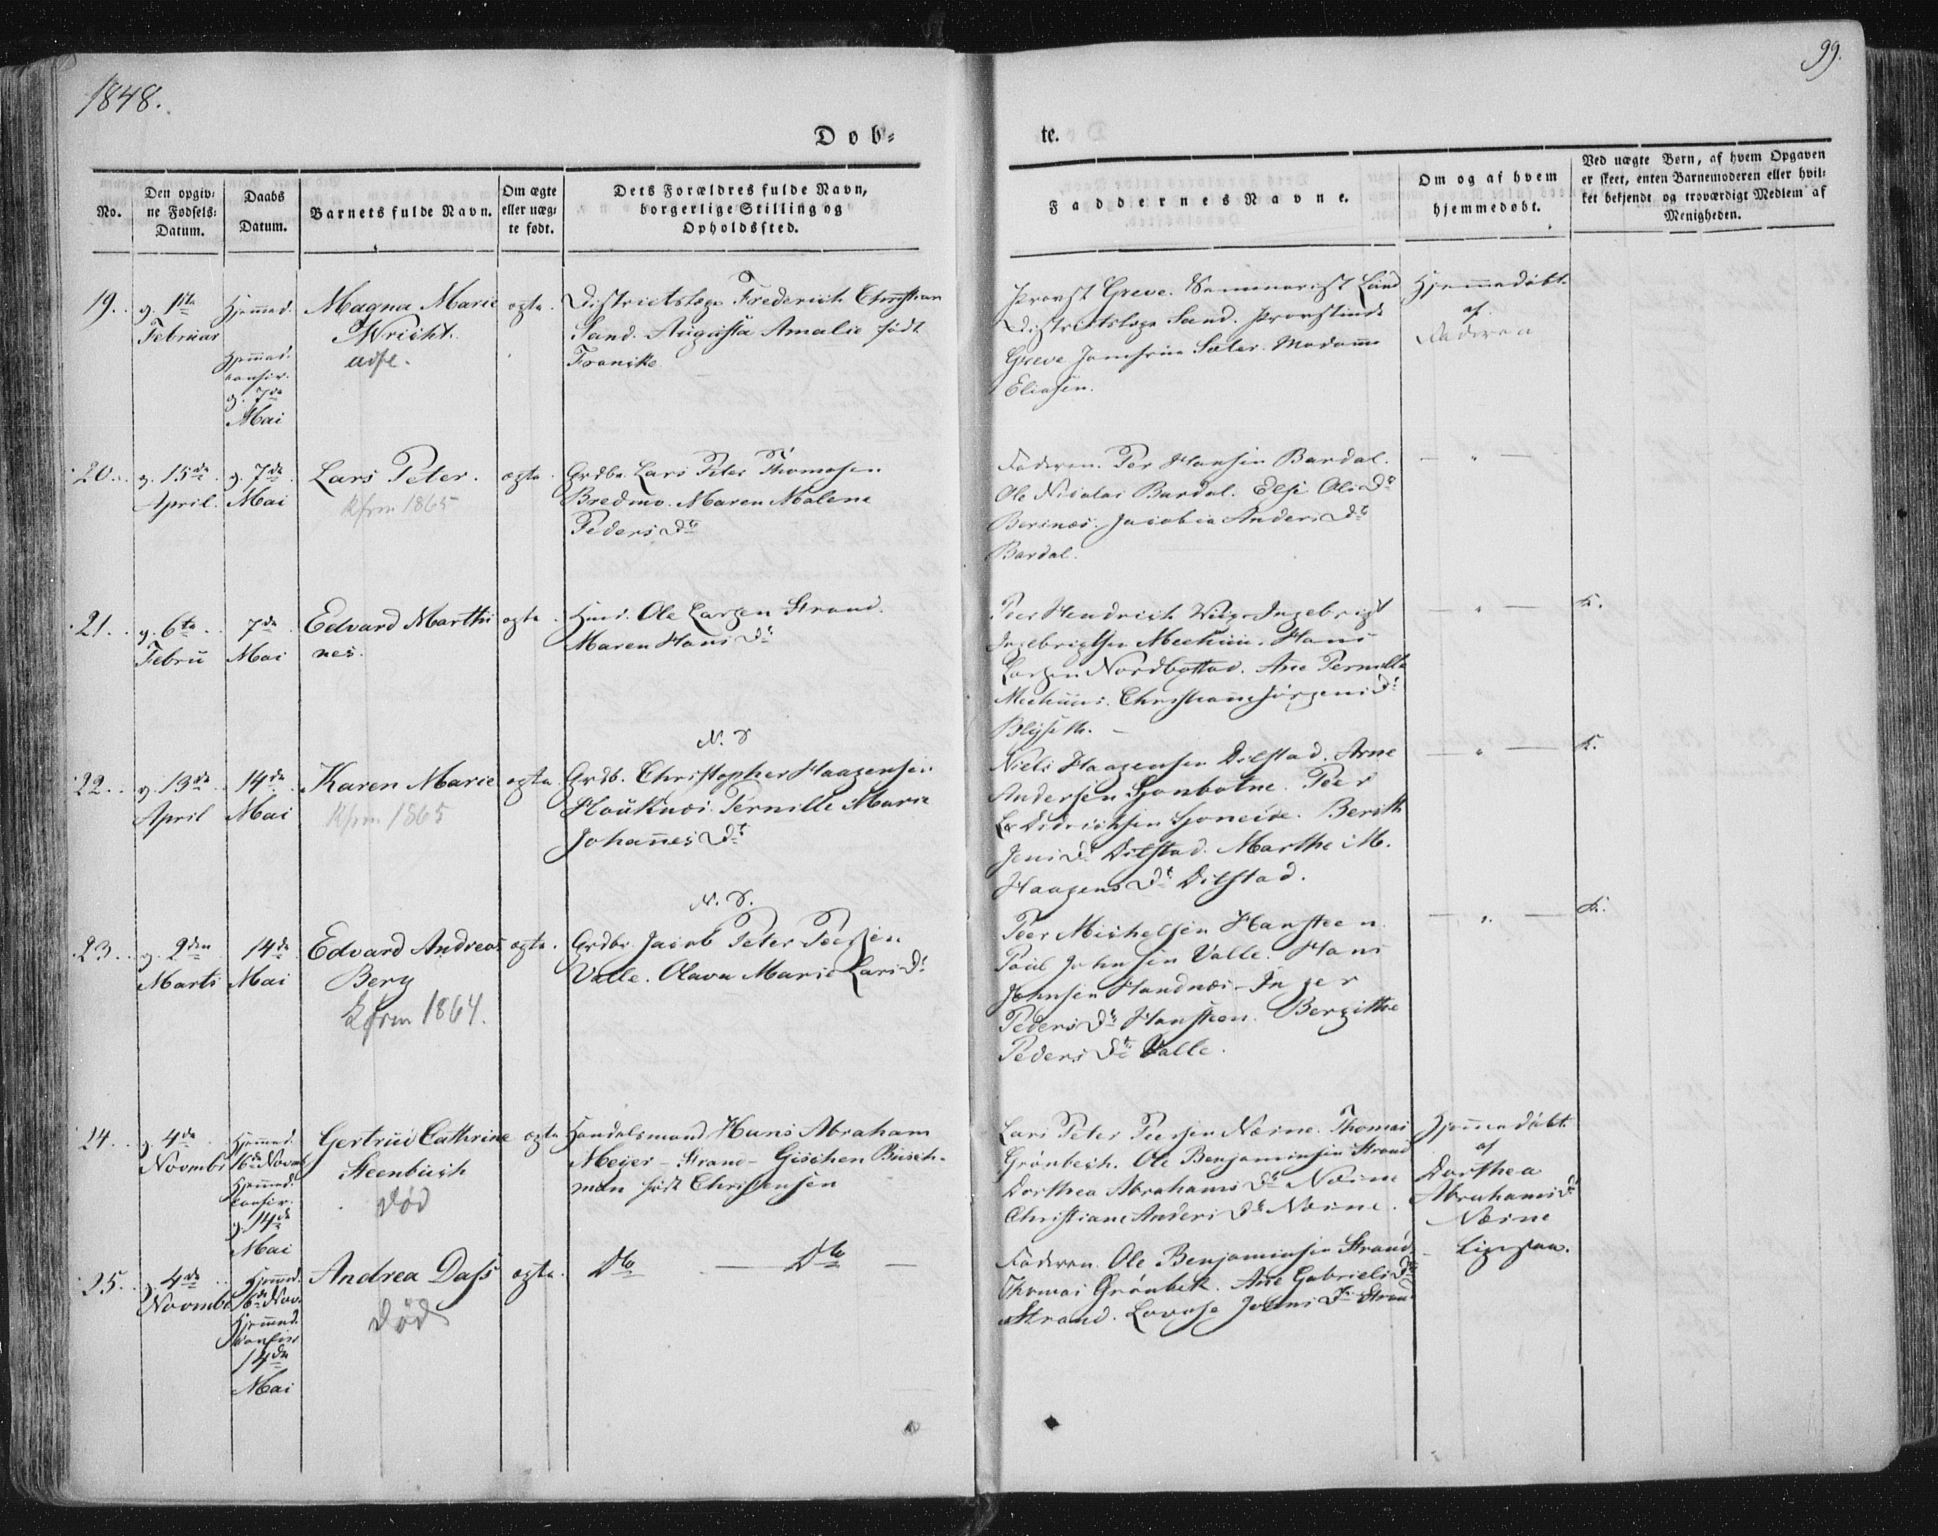 1848.
99.
Døb-
te.
No.
Den opgiv-
ne Fødsels-
Datum.
Daabs
Datum.
Barnets fulde Navn.
Om ægte
eller uæg-
te født.
Dets Forældres fulde Navn,
borgerlige Stilling og
Opholdssted.
Faddernes Navne.
Om og af hvem
hjemmedøbt.
Ved uægte Børn, af hvem Opgaven
er skeet, enten Barnemoderen eller hvil-
ket bekjendt og troværdigt Medlem af
Menigheden.
19.
g. 1ste
Februar
Hjemmed.
Hjemmed.
confir.
g. 7de
Mai
Magna Marie
Wricht.
ægte.
Districtslæge Frederich Christian
Sand. Augusta Amalie født
Francke
Provst Greve. Seminarist Lund
Districtslæge Sand. Provstinde
Greve Jomfrue Madame
Eliasen.
Hjemmedøbt
af
Faderen
20.
g. 15de
April.
g. 7de
Mai
Lars Peter.
Kfrm 1865
ægte.
Grdbr. Lars Peter Thomasen
Bredmo. Maren Malene
Peders Dtr
Faderen. Per Hansen Bardal.
Ole Nicolai Bardal. Else Ols Dr
Jacobia Anders Dr
Bardal.
— " —
21.
g. 6te
Febru
7de
Mai
Edvard Marthi
nes.
ægte.
Huusm. Ole Larsen Strand.
Maren Hans Dr
Peer Hendrich Ingebrigt
Ingebrigtsen Hans
Larsen Nordbostad. Ane Pernille
Christiane Jørgens Dr
— " —
K.
22.
g. 13de
April
14de
Mai
Karen Marie
Kfrm 1865
ægte.
N. S
Grdb. Christopher Haagensen
Houknes. Pernille Marie
Johannes Dr
Niels Haagensen Dilstad. Arne
Andersen Sjonbotne. Peer
Didrichsen Sjoneide. Berith
Jens Dr Dilstad. Marthe M.
Haagens Dr Dilstad.
— " —
K.
23.
g. 2den
Marts
14de
Mai
Edvard Andreas
Berg
Kfrm 1864.
ægte.
N. S.
Grdbr. Jacob Peter Peersen
Valle. Olava Marie Lars Dr
Peer Michelsen Hansteen
Poul Johnsen Valle. Hans
Johnsen Handnes. Inger
Peders Dr Hansteen. Bergitthe
Peders Dr Valle.
— " —
K.
24.
g. 4de
Novmbr
Hjemmed.
16de Novmb
Hjemmed.
confir.
g. 14de
Mai
Gertrud Cathrine
Steenbuch
død
ægte
Handelsmand Hans Abraham
Meyer – Strand – Gischen Busch-
man født Christensen
Lars Peter Peersen Nesne. Thomas
Grønbech. Ole Benjaminsen Strand
Dorthea Abrahams Dr Nesne
Christiane Anders Dr Nesne.
Hjemmedøbt
af
Dorthea
Abrahams Dr
Nesne
25.
g. 4de
Novmbr
Hjemmed.
16de Nov.
Hjemmed.
confir
14de
Mai
Andrea Dass
død
ægte.
Dto — Dto —
Faderen. Ole Benjaminsen Strand
Thomas Grønbek. Ane Gabriels Dr
Strand. Lovise Johns Dr Strand
Ligesaa.